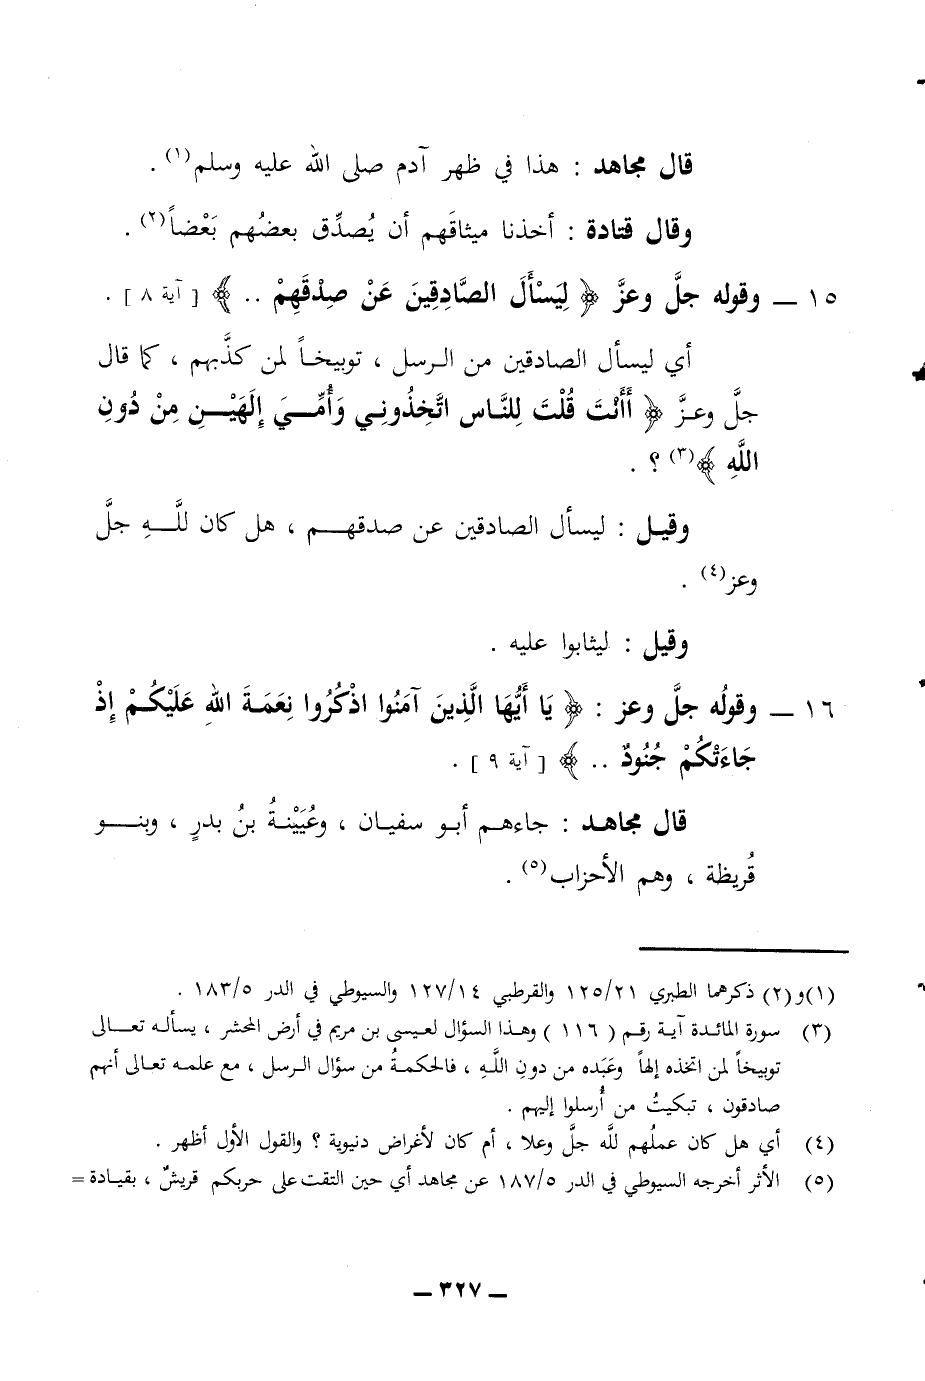 قال مجاهد : هذا في ظهر آدم صلى الله عليه وسلم(١) .
وقال قتادة : أخذنا ميثاقَهم أن يُصدِّق بعضُهم بَعْضاً(٢) .
١٥ ــ وقوله جلَّ وعزَّ ﴿ لِيَسْأَلَ الصَّادِقِينَ عَنْ صِدْقِهِمْ .. ﴾ [ آية ٨ ] .
أي ليسأل الصادقين من الرسل ، توبيخاً لمن كذَّبهم ، كما قال
جلَّ وعزَّ ﴿ أَأَنْتَ قُلْتَ لِلنَّاسِ اتَّخِذُونِي وَأُمِّيَ إِلَهَيْنِ مِنْ دُونِ
اللَّهِ ﴾(٣) ؟ .
وقيل : ليسأل الصادقين عن صدقهم ، هل كان للَّهِ جلَّ
وعز(٤) .
وقيل : ليثابوا عليه .
١٦ ــ وقولُه جلَّ وعز : ﴿ يَا أَيُّهَا الَّذِينَ آمَنُوا اذْكُرُوا نِعَمَةَ اللهِ عَلَيْكُمْ إِذْ
جَاءَتْكُمْ جُنُودٌ .. ﴾ [ آية ٩ ] .
قال مجاهد : جاءهم أبو سفيان ، وعُيَيْنةُ بنُ بدرٍ ، وبنو
قُريظة ، وهم الأحزاب(٥) .
(١)و(٢) ذكرهما الطبري ١٢٥/٢١ والقرطبي ١٢٧/١٤ والسيوطي في الدر ١٨٣/٥ .
(٣) سورة المائدة آية رقم ( ١١٦ ) وهذا السؤال لعيسى بن مريم في أرض المحشر ، يسأله تعالى
توبيخاً لمن اتخذه إلهاً وعَبَده من دونِ اللَّهِ ، فالحكمةُ من سؤال الرسل ، مع علمه تعالى أنهم
صادقون ، تبكيتُ من أُرسلوا إليهم .
(٤) أي هل كان عملُهم للَّه جلَّ وعلا ، أم كان لأغراض دنيوية ؟ والقول الأول أظهر .
(٥) الأثر أخرجه السيوطي في الدر ١٨٧/٥ عن مجاهد أي حين التقت على حربكم قريشٌ ، بقيادة =
ــ ٣٢٧ ــ